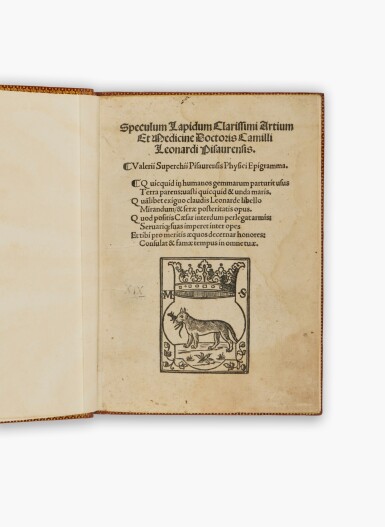 Speculum Lapidum Clarissimi Artium
Et Medicine Doctoris Camilli
Leonardi Pisaurensis.
¶Valerii Superchii Pisaurensis Physici Epigramma.
¶Quicquid in humanos gemmarum parturit usus
Terra parens uasti quicquid & unda maris,
Quilibet exiguo claudis Leonarde libello
Mirandum, & seræ posteritatis opus.
Quod positis Cæsar interdum perlegat armis:
Seruatiqȝ suas imperet inter opes
Et tibi pro meritis æquos decernat honores:
Consulat & famæ tempus in omne tuæ.
M S